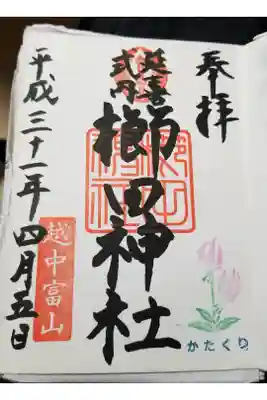 奉拝
延喜
式内
櫛田神社
越中富山
平成三十一年四月五日
かたくり